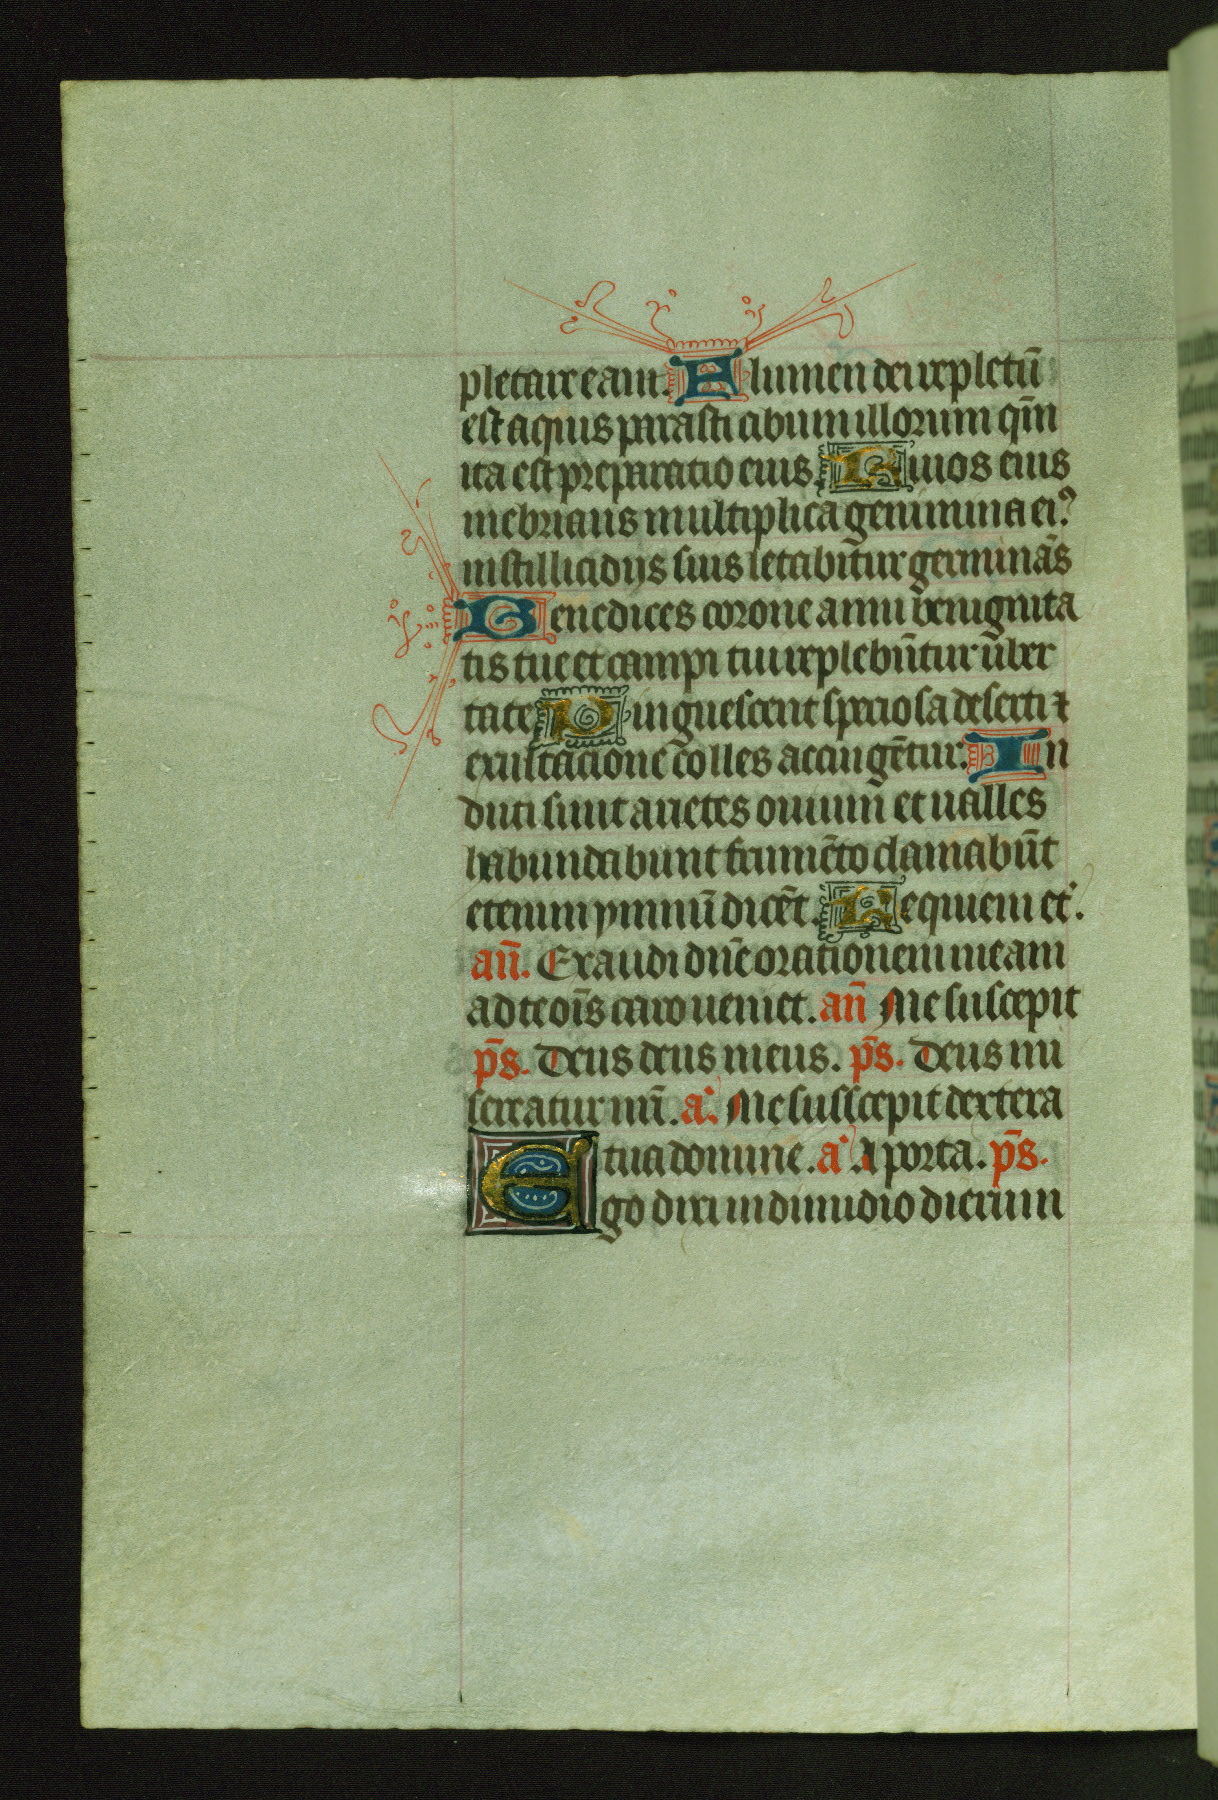 pletare eam. Flumen dei repletū
est aquis parasti cibum illorum qm̄
ita est preparatio eius. Riuos eius
inebrians multiplica genimina eiꝰ
in stillicidijs suis letabit̄ur germinās
Benedices corone anni benignita
tis tue et campi tui replebūtur ūber
tate. Pinguescent speciosa deserti ⁊
exultacione colles accingētur. In
duti sunt arietes ouium et ualles
habundabunt frumēto clamabūt
etenim ymnū dicēt. Requiem et.
an̄. Exaudi dn̄e orationem meam
ad te oīs caro ueniet. an̄ Me suscepit
ps̄. Deus deus meus. ps̄. Deus mi
sereatur nr̄i. a. Me susscepit dextera
tua domine. a A porta. ps̄.
Ego dixi in dimidio dierum